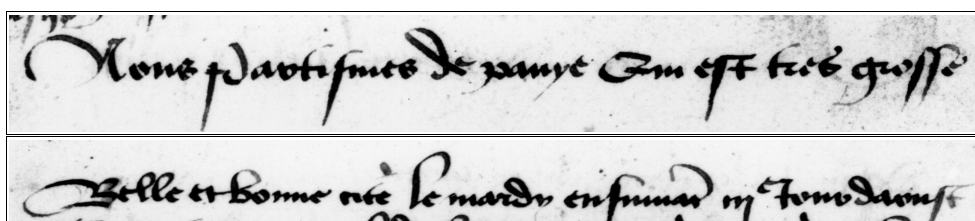 Nous partismes de pauye Qui est tres grosse
Belle et bonne cite le mardy ensuiuāt iii e Jour daoust